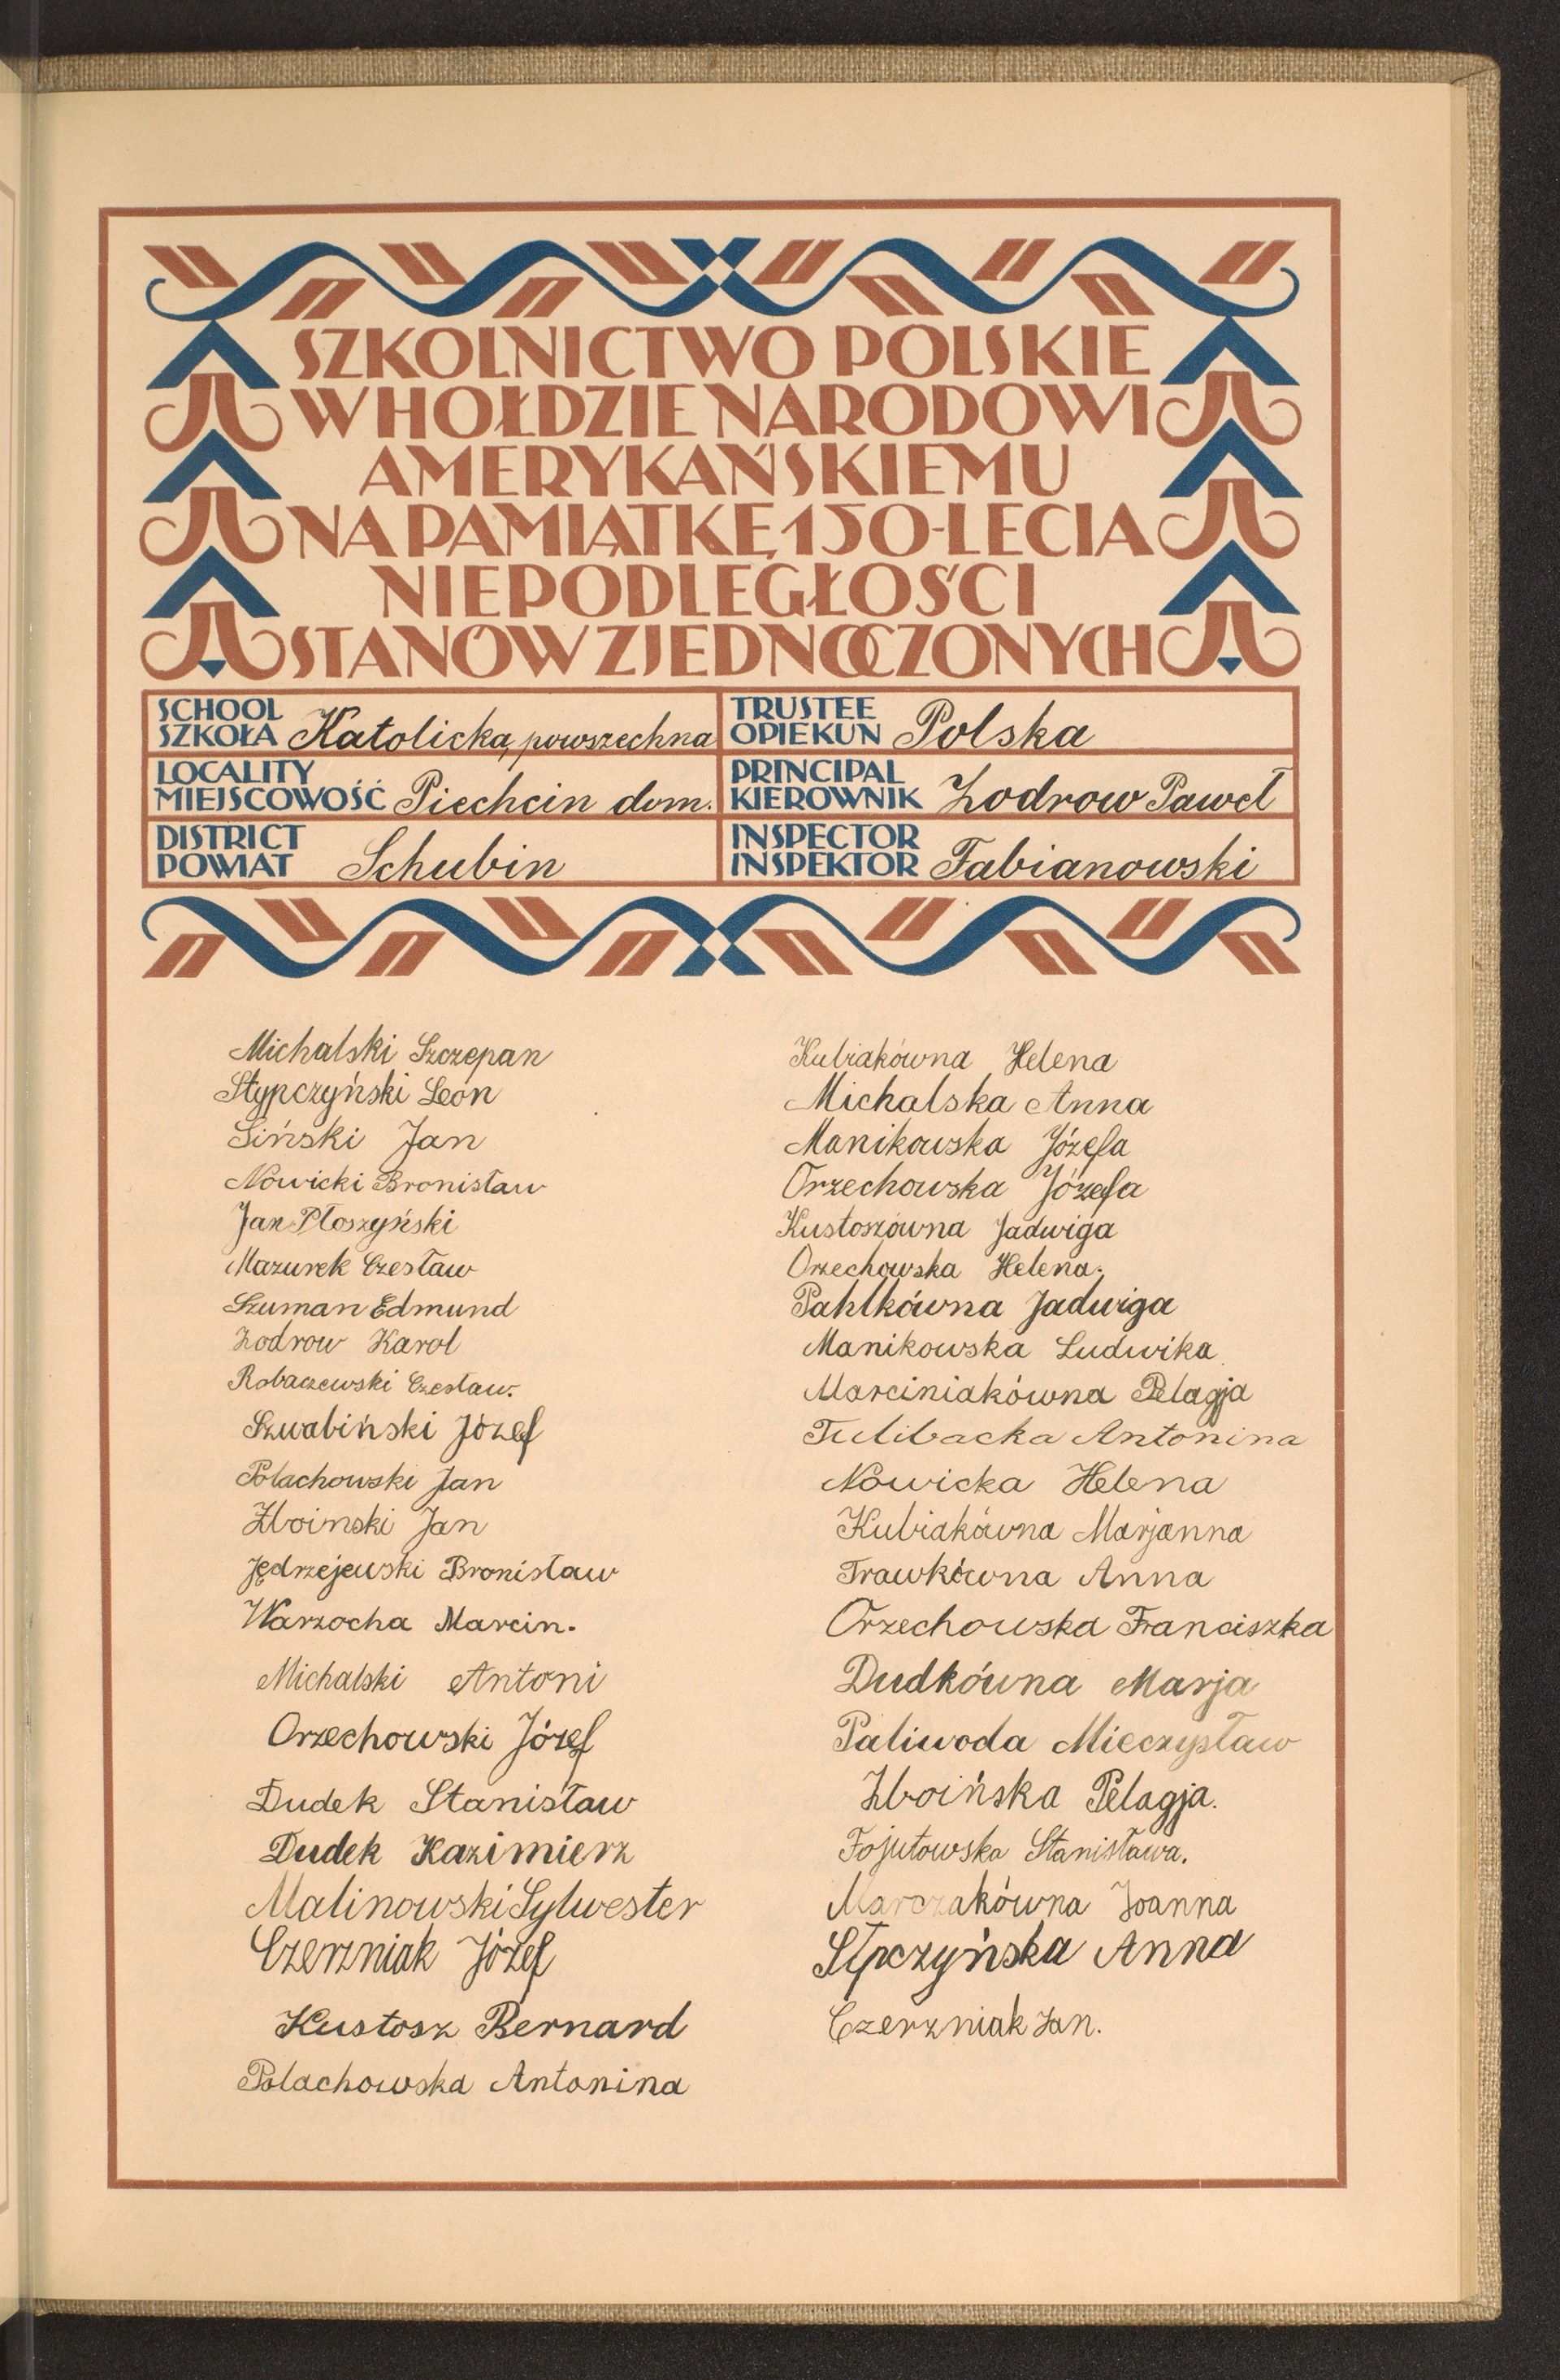 SZKOLNICTWO POLSKIE
W HOŁDZIE NARODOWI
AMERYKAŃSKIEMU
NA PAMIĄTKĘ 150-LECIA
NIEPODLEGŁOŚCI
STANÓW ZJEDNOCZONYCH
SCHOOL
SZKOŁA Katolicka, powszechna
TRUSTEE
OPIEKUN Polska
LOCALITY
MIEJSCOWOŚĆ Piechcin dom.
PRINCIPAL
KIEROWNIK Zodrow Paweł
DISTRICT
POWIAT Schubin
INSPECTOR
INSPEKTOR Fabianowski
Michalski Szczepan
Stypczyński Leon
Siński Jan
Nowicki Bronisław
Jan Płoszyński
Mazurek Czesław
Szuman Edmund
Zodrow Karol
Robaczewski Czesław.
Szwabiński Józef
Polachowski Jan
Zboinski Jan
Jędrzejewski Bronisław
Warzocha Marcin.
Michalski Antoni
Orzechowski Józef
Dudek Stanisław
Dudek Kazimierz
Malinowski Sylwester
Czerzniak Józef
Kustosz Bernard
Polachowska Antonina
Kubiakówna Helena
Michalska Anna
Manikowska Józefa
Orzechowska Józefa
Kustoszówna Jadwiga
Orzechowska Helena.
Pahlkówna Jadwiga
Manikowska Ludwika
Marciniakówna Pelagja
Tulibacka Antonina
Nowicka Helena
Kubiakówna Marjanna
Trawkówna Anna
Orzechowska Franciszka
Dudkówna Marja
Paliwoda Mieczysław
Zboińska Pelagja.
Fojutowska Stanisława.
Marczakówna Joanna
Stpczyńska Anna
Czerzniak Jan.